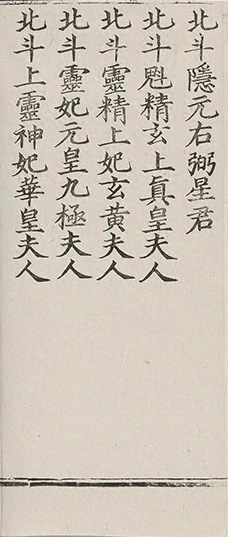 北斗隱元右弼星君
北斗魁精玄上真皇夫人
北斗靈精上妃玄黄夫人
北斗靈妃元皇九極夫人
北斗上靈神妃華皇夫人